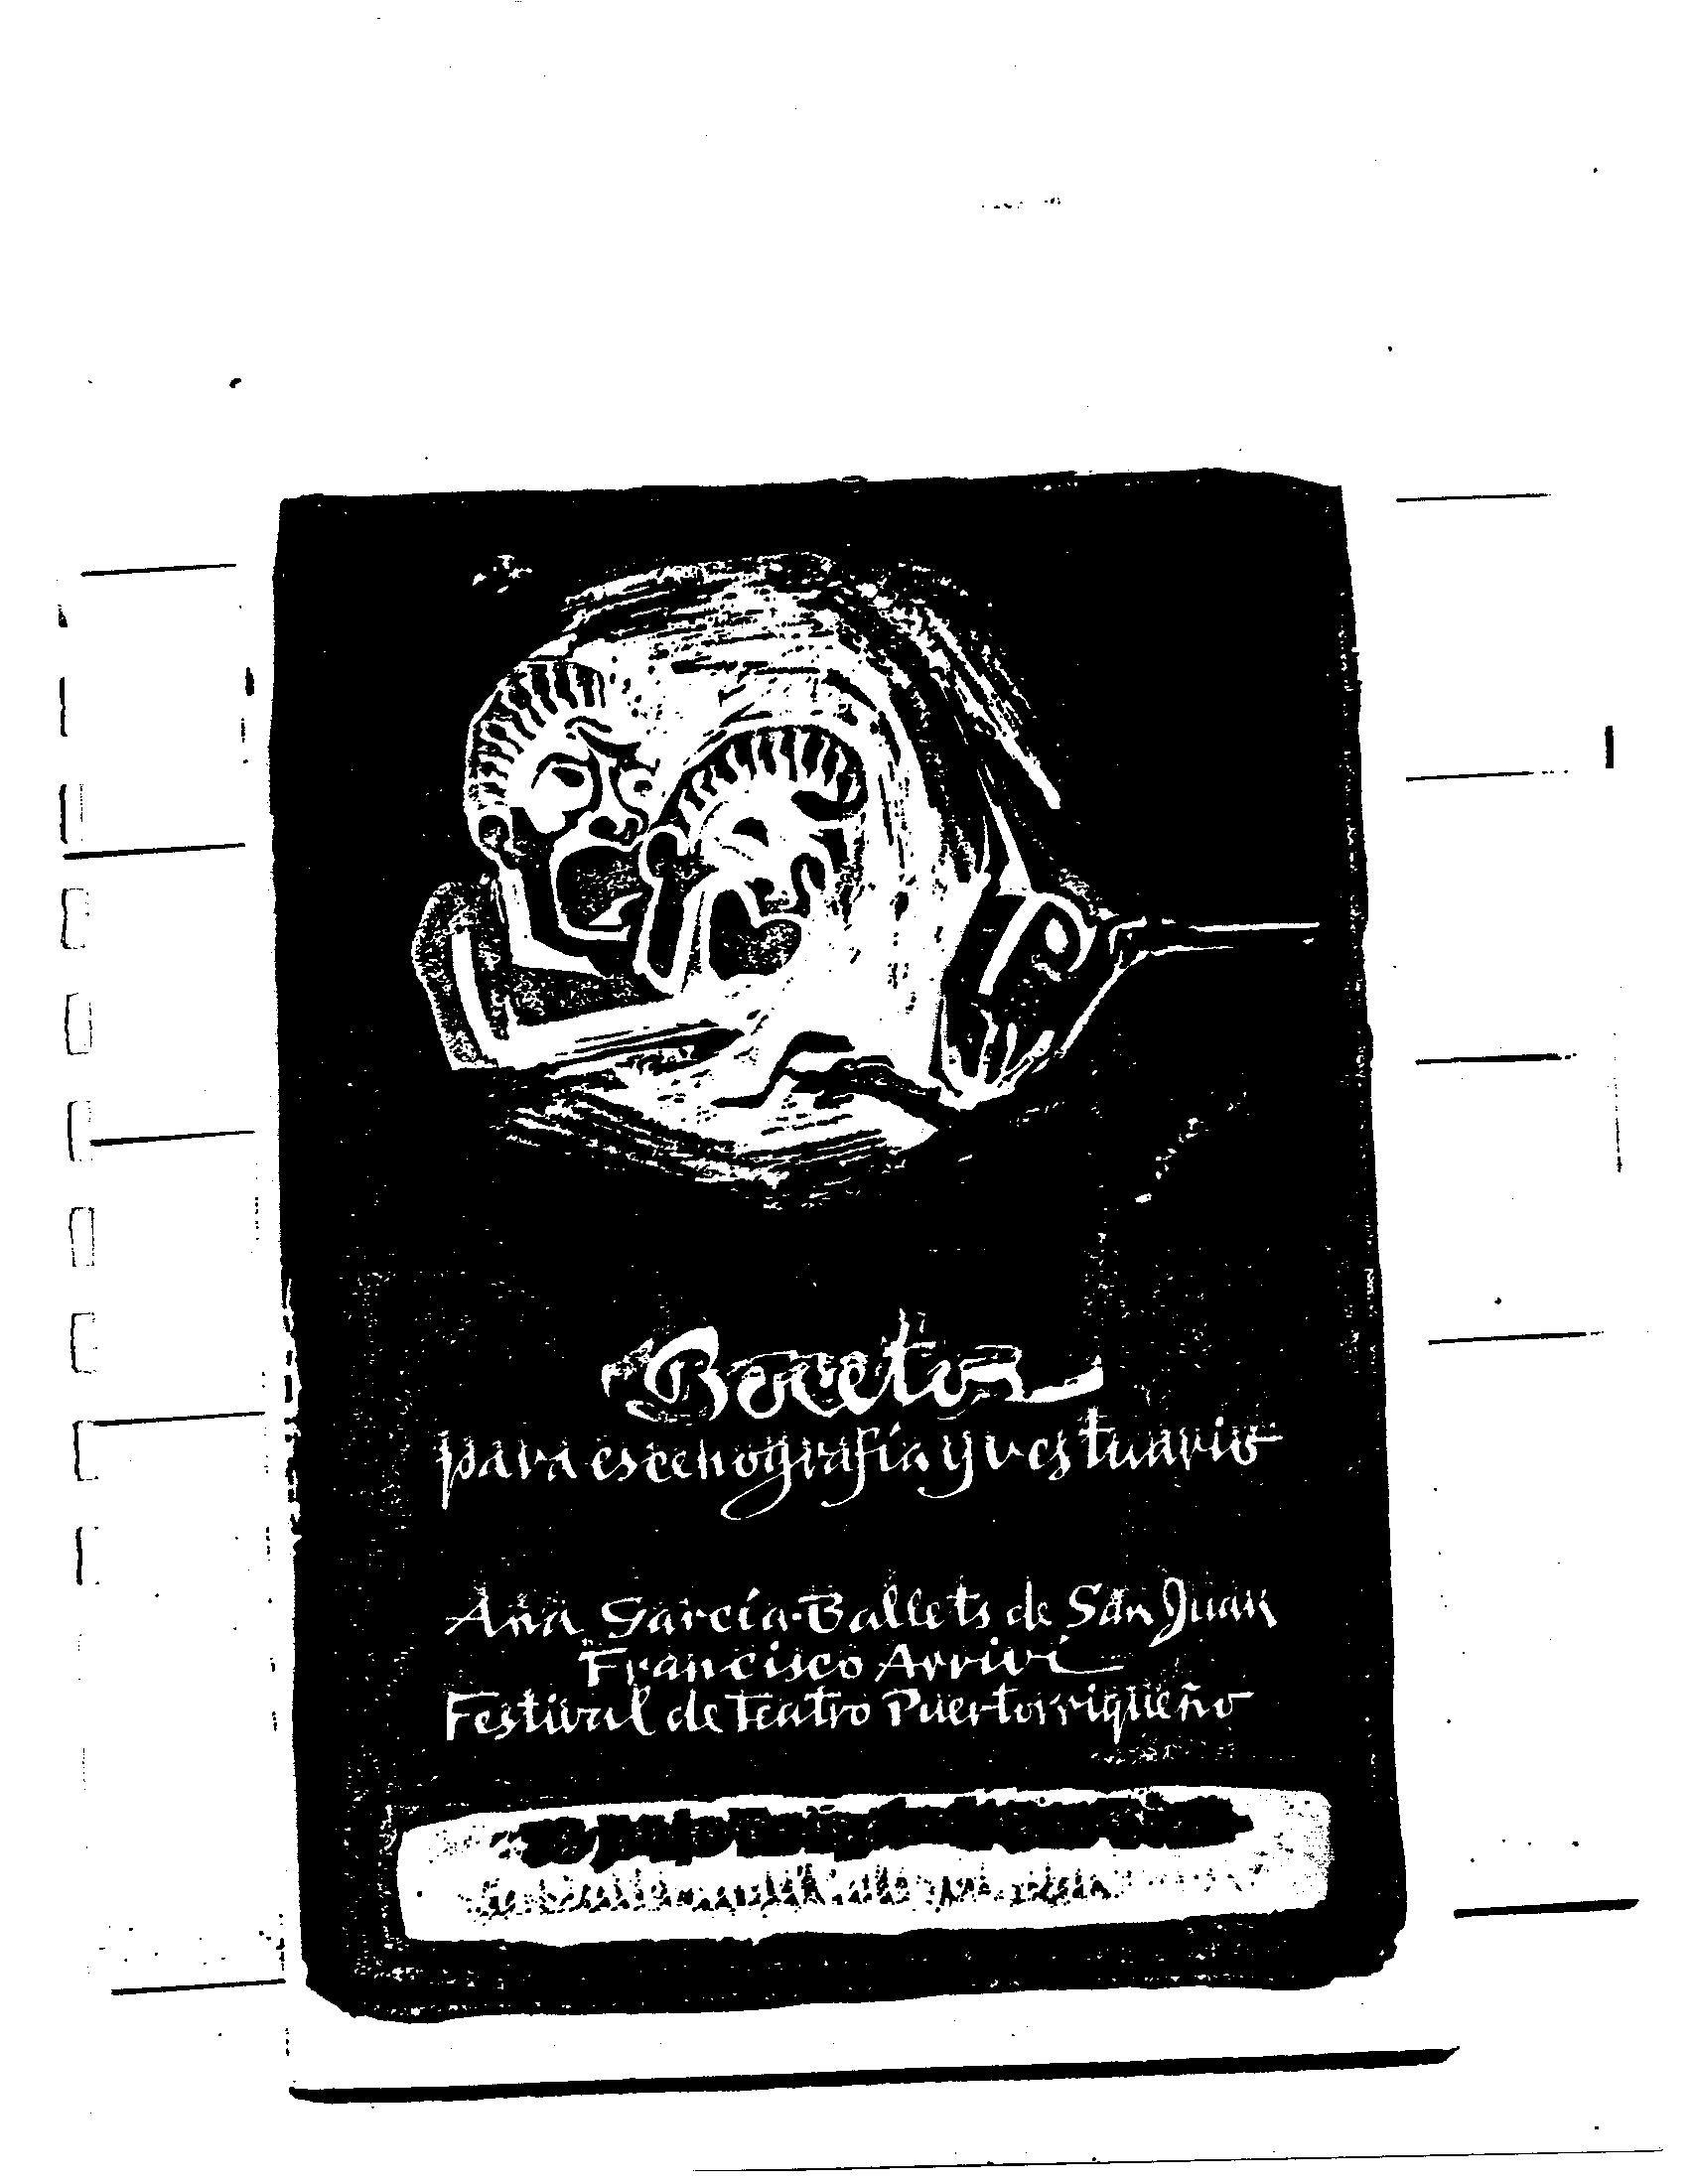 Bocetos
para escenografía y vestuario
Ana García-Ballets de San Juan
Francisco Arriví
Festival de Teatro Puertorriqueño